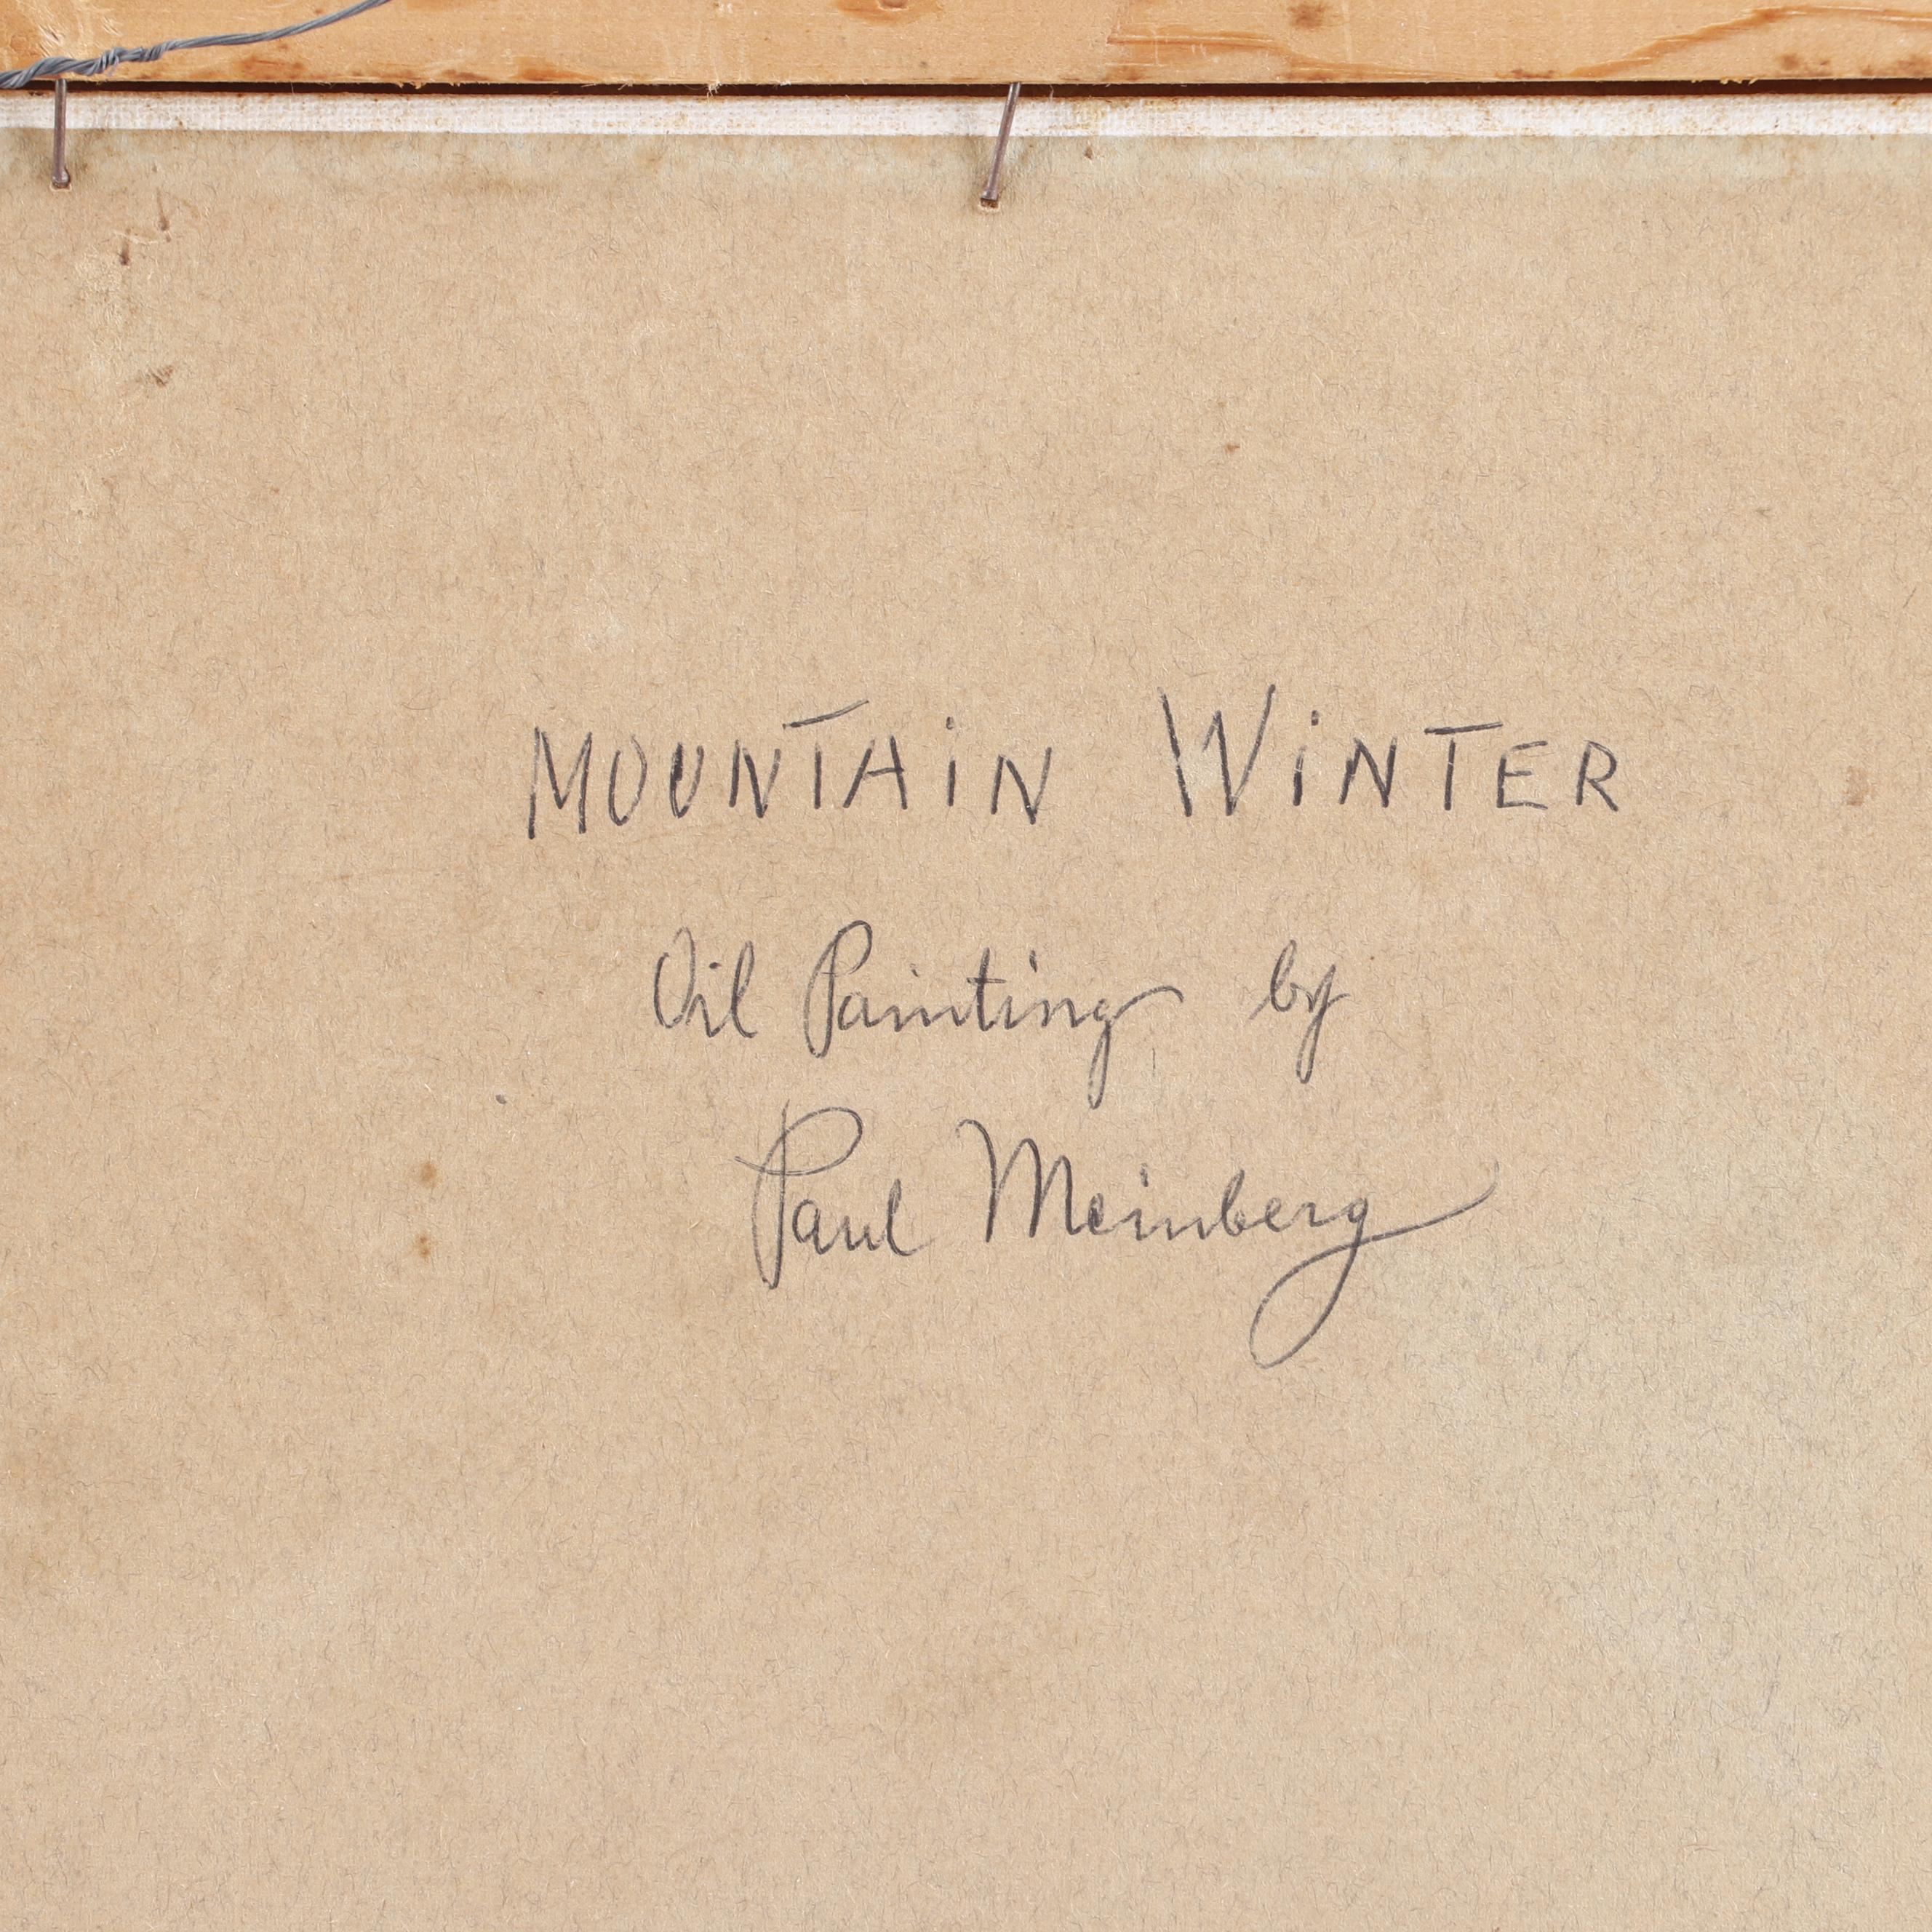 MOUNTAiN WiNTER
Oil Painting by
Paul Meinberg